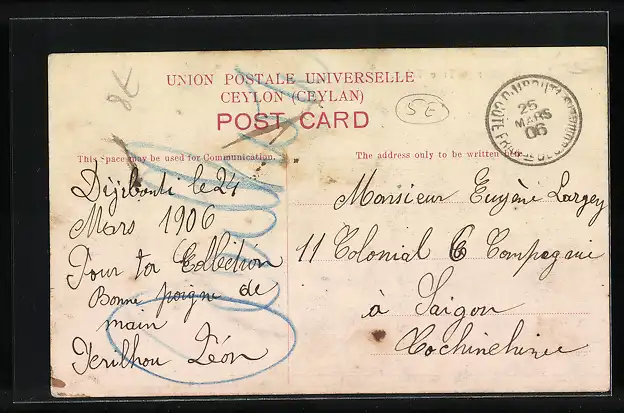 UNION POSTALE UNIVERSELLE
CEYLON (CEYLAN)
POST CARD
5 E
25
MARS
06
This Space may be used for Communication.
The address only to be written
Djibouti le 24
Mars 1906
Pour ta Collection
Bonne poigne de
main
Léon
Monsieur Eugène Largey
11 Colonial 6 Compagnie
à Saigon
Cochinchine